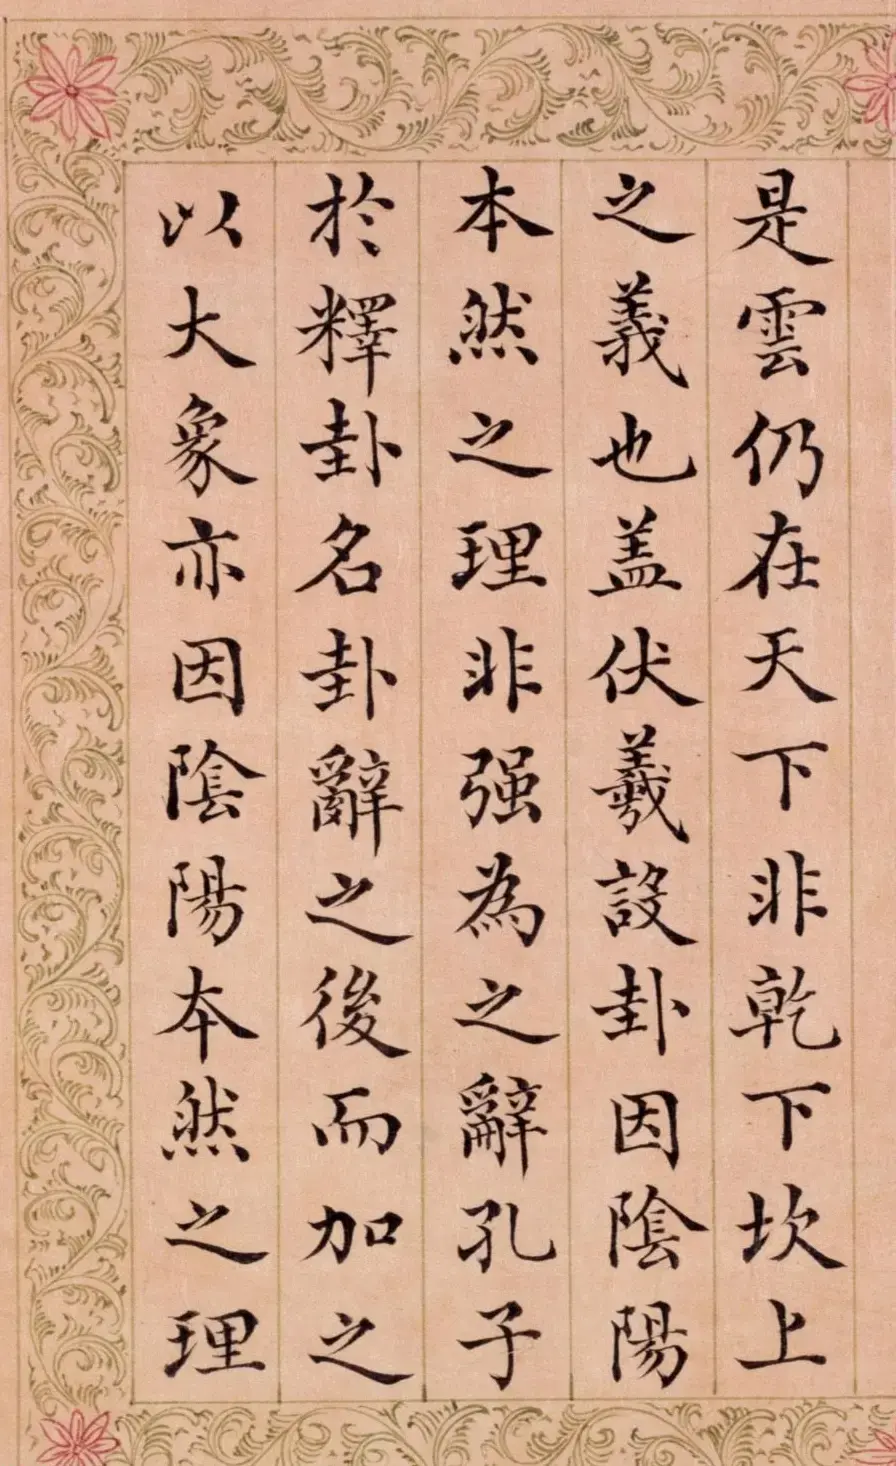 是雲仍在天下非乾下坎上
之義也盖伏羲設卦因陰陽
本然之理非强為之辭孔子
於釋卦名卦辭之後而加之
以大象亦因陰陽本然之理